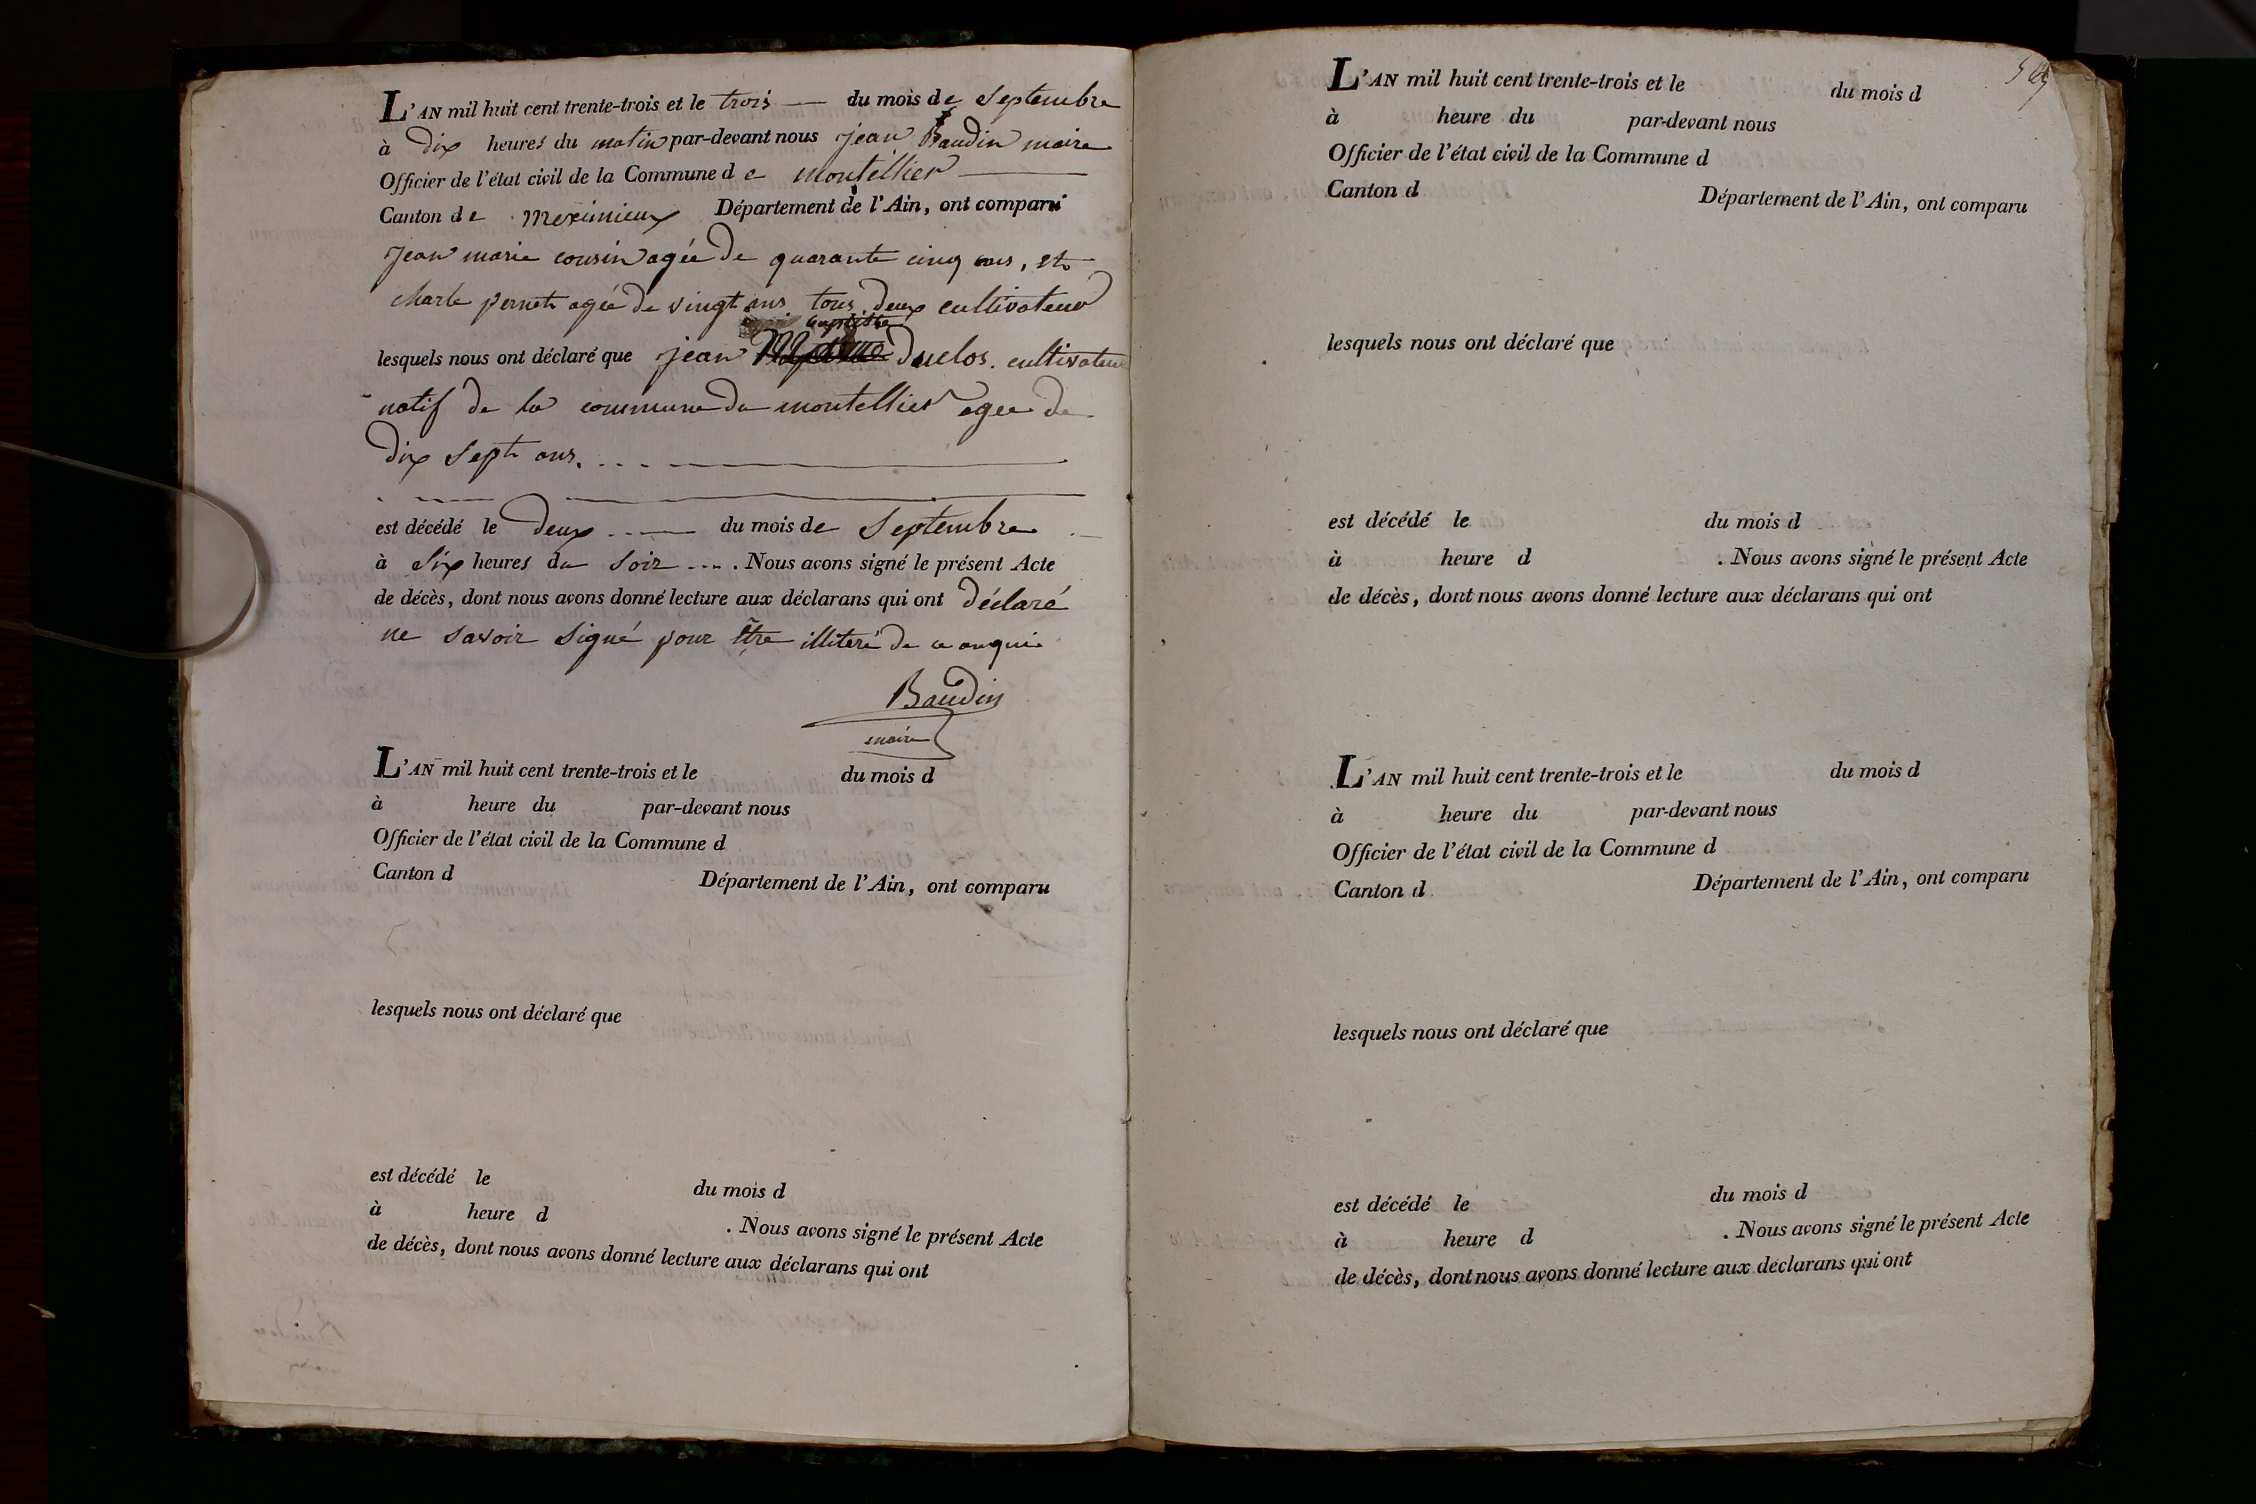 L'AN mil huit cent trente-trois et le trois du mois de Septembre
à dix heures du matin par-devant nous jean Baudin maire
Officier de l'état civil de la Commune de montellier
Canton de meximieux Département de l'Ain, ont comparu
jean marie cousin agée de quarante cinq ans, et
charle pernet agée de vingt ans tous deux cultivateur
baptiste
lesquels nous ont déclaré que jean Duclos. cultivateur
natif de la commune du montellier agee de
dix Sept ans.
est décédé le deux du mois de Septembre
à Six heures du Soir . Nous avons signé le présent Acte
de décès, dont nous avons donné lecture aux déclarans qui ont déclaré
ne savoir Signé pour être illiteré de ce
Baudin
maire
L'AN mil huit cent trente-trois et le du mois d
à heure du par-devant nous
Officier de l'état civil de la Commune d
Canton d Département de l'Ain, ont comparu
lesquels nous ont déclaré que
est décédé le du mois d
à heure d . Nous avons signé le présent Acte
de décès, dont nous avons donné lecture aux déclarans qui ont
L'AN mil huit cent trente-trois et le du mois d
à heure du par-devant nous
Officier de l'état civil de la Commune d
Canton d Département de l'Ain, ont comparu
lesquels nous ont déclaré que
est décédé le du mois d
à heure d . Nous avons signé le présent Acte
de décès, dont nous avons donné lecture aux déclarans qui ont
L'AN mil huit cent trente-trois et le du mois d
à heure du par-devant nous
Officier de l'état civil de la Commune d
Canton d Département de l'Ain, ont comparu
lesquels nous ont déclaré que
est décédé le du mois d
à heure d . Nous avons signé le présent Acte
de décès, dont nous avons donné lecture aux déclarans qui ont